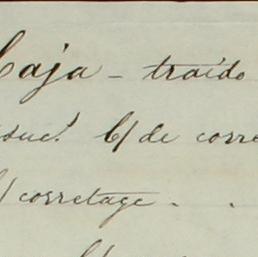 Caja - traido
C/ de corre
C/ corretage .